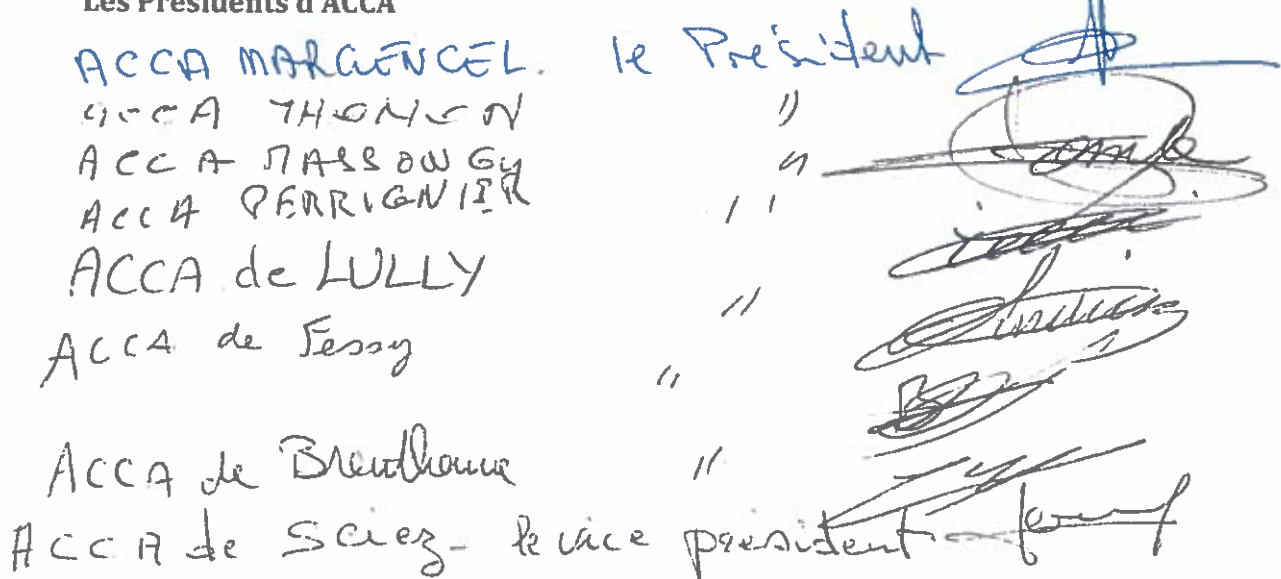 Les Présidents d'ACCA
ACCA MARGENCEL. le Président
ACCA THONON "
ACCA MASSONGY "
ACCA PERRIGNIER "
ACCA de LULLY "
ACCA de Fessy "
ACCA de Brenthonne "
ACCA de Sciez - le vice président